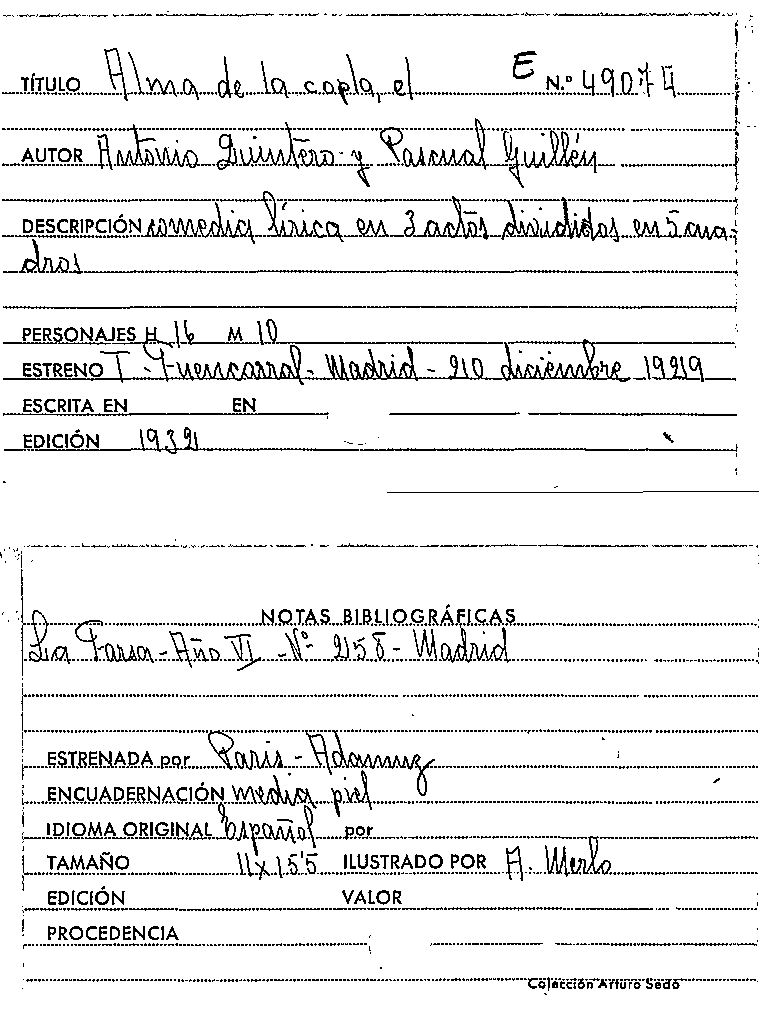 TÍTULO Alma de la copla, el E N.º 49074
AUTOR Antonio Quintero y Pascual Guillén
DESCRIPCIÓN comedia lírica en 3 actos divididos en 5 cua-
dros
PERSONAJES H 16 M 10
ESTRENO T. Fuencarral - Madrid - 20 diciembre 1929
ESCRITA EN EN
EDICIÓN 1932
NOTAS BIBLIOGRÁFICAS
La Farsa - Año VI - Nº 258 - Madrid
ESTRENADA por Paris - Adamuz
ENCUADERNACIÓN media piel
IDIOMA ORIGINAL Español por
TAMAÑO 11x15'5 ILUSTRADO POR A. Merlo
EDICIÓN VALOR
PROCEDENCIA
Colección Arturo Sedó